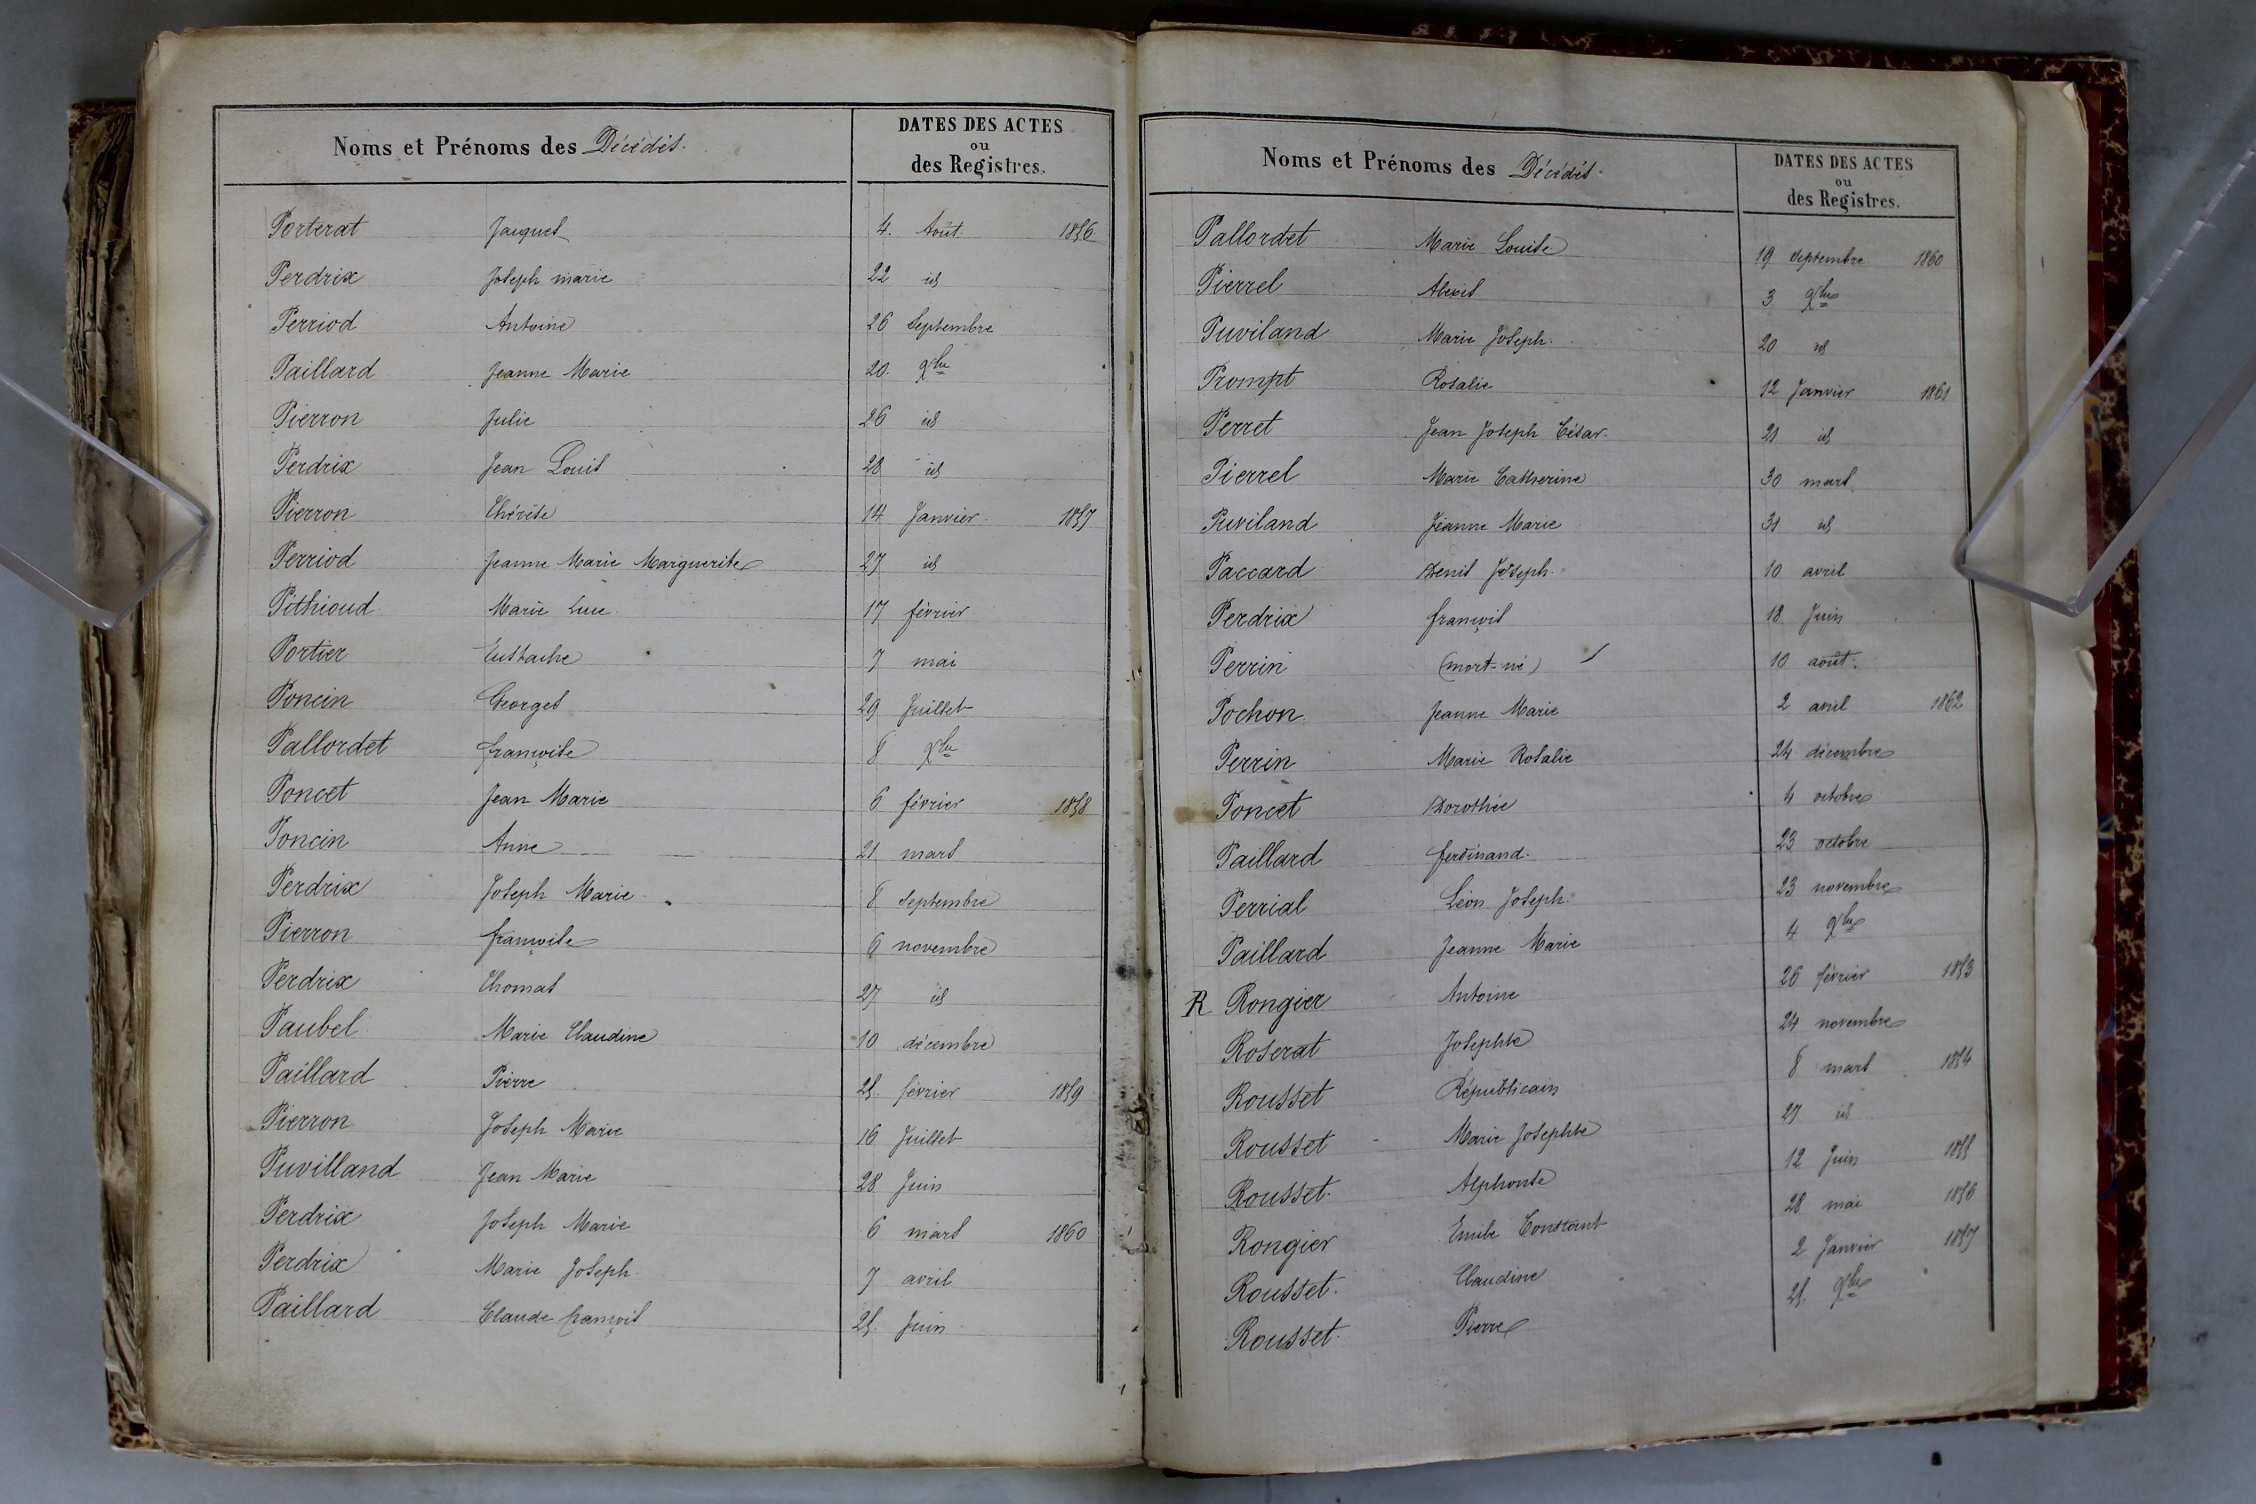 Noms et Prénoms des Décédés.
DATES DES ACTES
ou
des Registres.
Porterat Jacques 4. Août 1856
Perdrix Joseph marie 22 id
Perriod Antoine 26 Septembre
Paillard Jeanne Marie 20. Xbre
Pierron Julie 26 id
Perdrix Jean Louis 28 id
Pierron Thérèse 14 Janvier 1857
Perriod Jeanne Marie Marguerite 27 id
Pithioud Marie Luce 17 février
Portier Eustache 7 mai
Poncin Georges 29 Juillet
Pallordet françoise 8 Xbre
Poncet Jean Marie 6 février 1858
Poncin Anne 21 mars
Perdrix Joseph Marie 8 Septembre
Pierron françoise 6 novembre
Perdrix Thomas 27 id
Paubel Marie Claudine 10 décembre
Paillard Pierre 25. février 1859
Pierron Joseph Marie 16 Juillet
Puvilland Jean Marie 28 Juin
Perdrix Joseph Marie 6 mars 1860
Perdrix Marie Joseph 7 avril
Paillard Claude françois 25. Juin
Noms et Prénoms des Décédés.
DATES DES ACTES
ou
des Registres.
Pallordet Marie Louise 19 Septembre 1860
Pierrel Alexis 3 Xbre
Puviland Marie Joseph. 20 id
Prompt Rosalie 12 Janvier 1861
Perret Jean Joseph César. 21 id
Pierrel Marie Catherine 30 mars
Puviland Jeanne Marie 31 id
Paccard Denis Joseph. 10 avril
Perdrix françois 18 Juin
Perrin (mort-né) 10 août.
Pochon Jeanne Marie 2 avril 1862
Perrin Marie Rosalie 24 décembre
Poncet Dorothée 4 octobre
Paillard ferdinand. 23 octobre
Perrial Léon Joseph. 23 novembre
Paillard Jeanne Marie 4 Xbre
R Rongier Antoine 26 février 1853
Roserat Josephte 24 novembre
Rousset Républicain 8 mars 1854
Rousset Marie Josephte 27 id
Rousset. Alphonse 12 Juin 1855
Rongier Emile Constant 28 mai 1856
Rousset. Claudine 2 Janvier 1857
Rousset. Pierre 25. Xbre